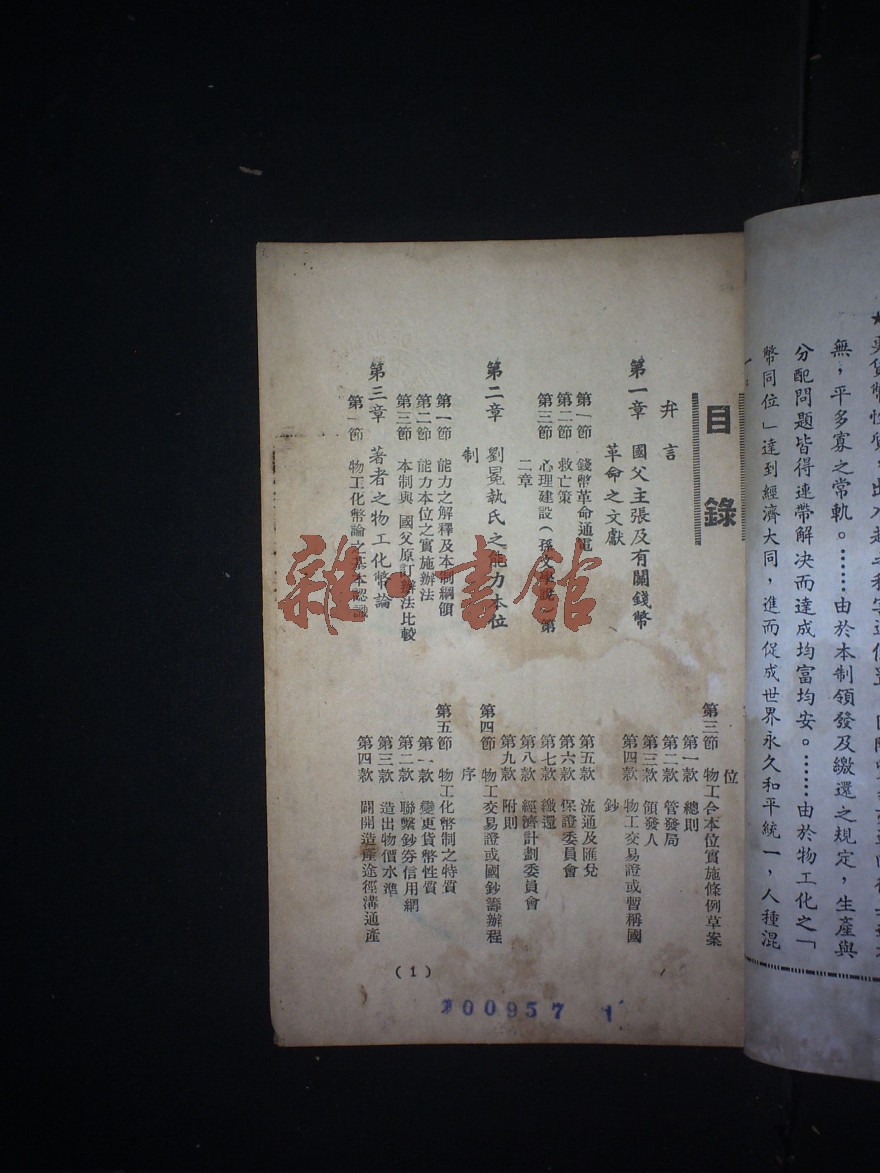 無，平多寡之常軌。……由於本制領發及繳還之規定，生產與
分配問題皆得連帶解决而達成均富均安。……由於物工化之「
幣同位」達到經濟大同，進而促成世界永久和平統一，人種混
目錄
弁言
第一章 國父主張及有關錢幣
革命之文獻
第一節 錢幣革命通電
第二節 救亡策
第三節 心理建設（孫文學說）第
二章
第二章 劉冕執氏之能力本位
制
第一節 能力之解釋及本制綱領
第二節 能力本位之實施辦法
第三節 本制與 國父原訂辦法比較
第三章 著者之物工化幣論
第一節 物工化幣論之基本認識
位
第三節 物工合本位實施條例草案
第一款 總則
第二款 管發局
第三款 領發人
第四款 物工交易證或暫稱國
鈔
第五款 流通及匯兌
第六款 保證委員會
第七款 繳還
第八款 經濟計劃委員會
第九款 附則
第四節 物工交易證或國鈔籌辦程
序
第五節 物工化幣制之特質
第一款 變更貨幣性質
第二款 聯繫鈔券信用網
第三款 造出物價水準
第四款 闢開造產途徑溝通產
(1)
200957 1
雜·書館